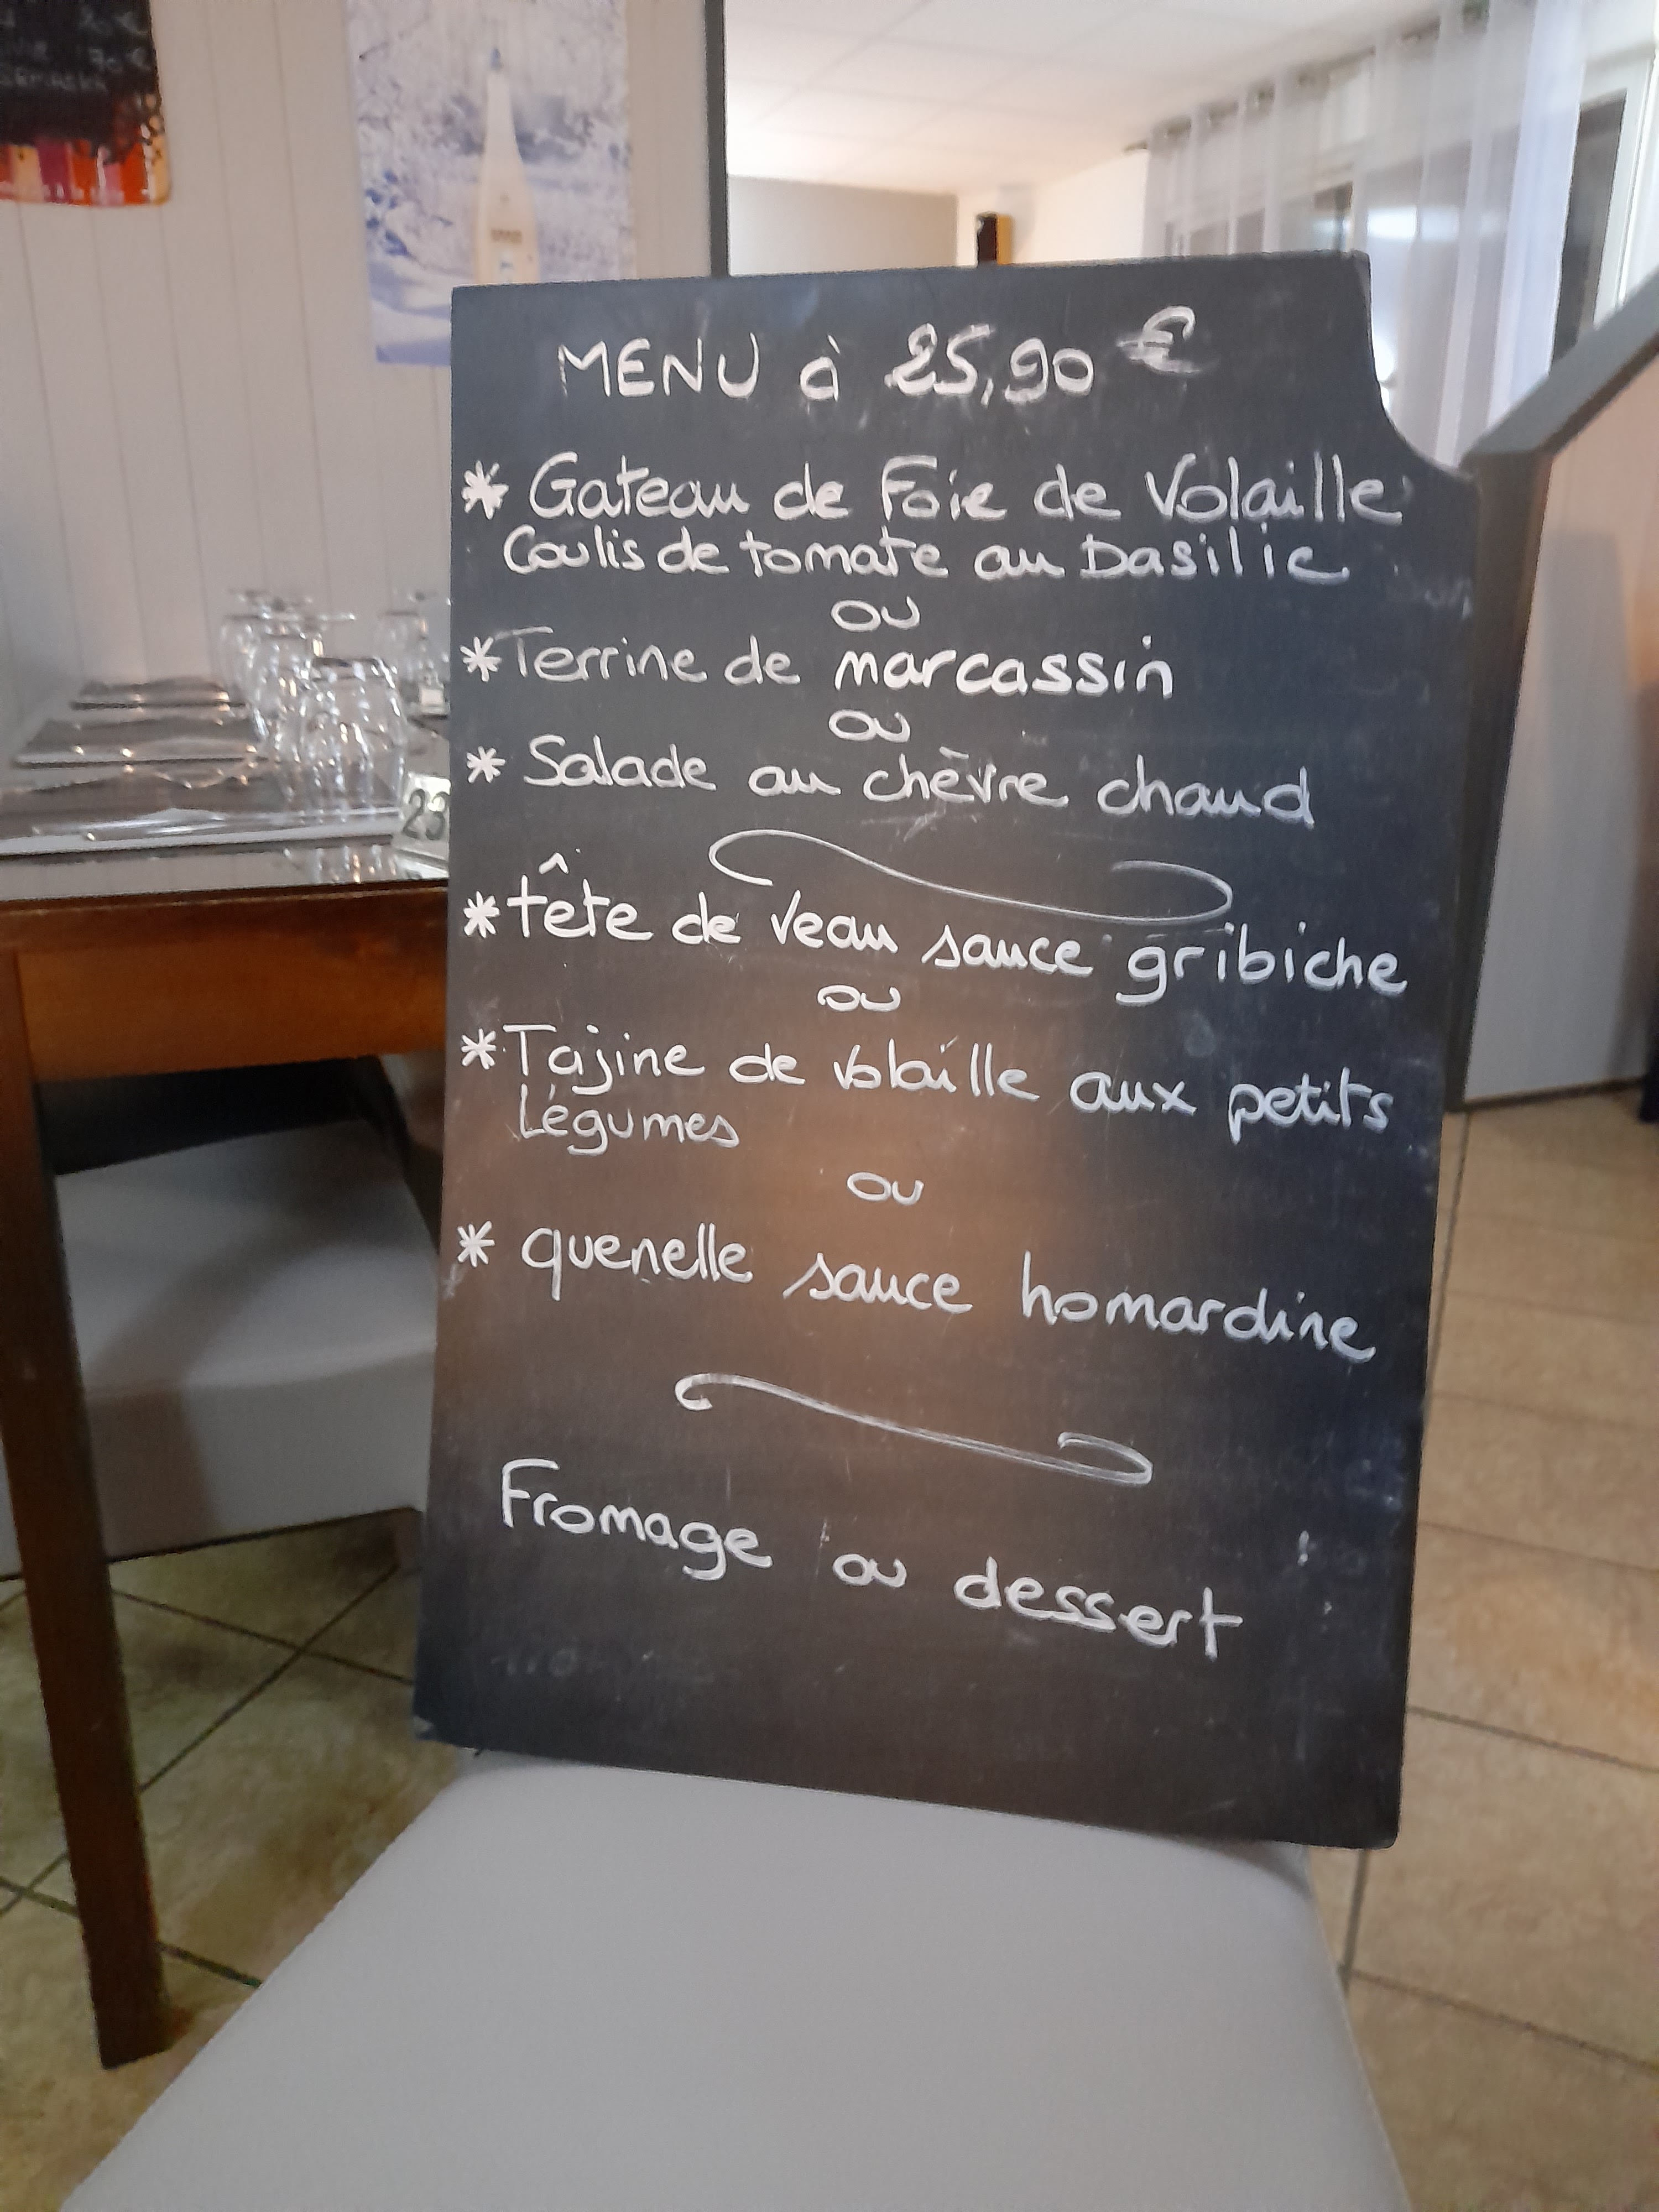 MENU à 25,90 €
* Gateau de Foie de Volaille
Coulis de tomate au basilic
ou
* Terrine de marcassin
ou
* Salade au chèvre chaud
* tête de veau sauce gribiche
ou
* Tajine de volaille aux petits
Légumes
ou
* quenelle sauce homardine
Fromage ou dessert
23